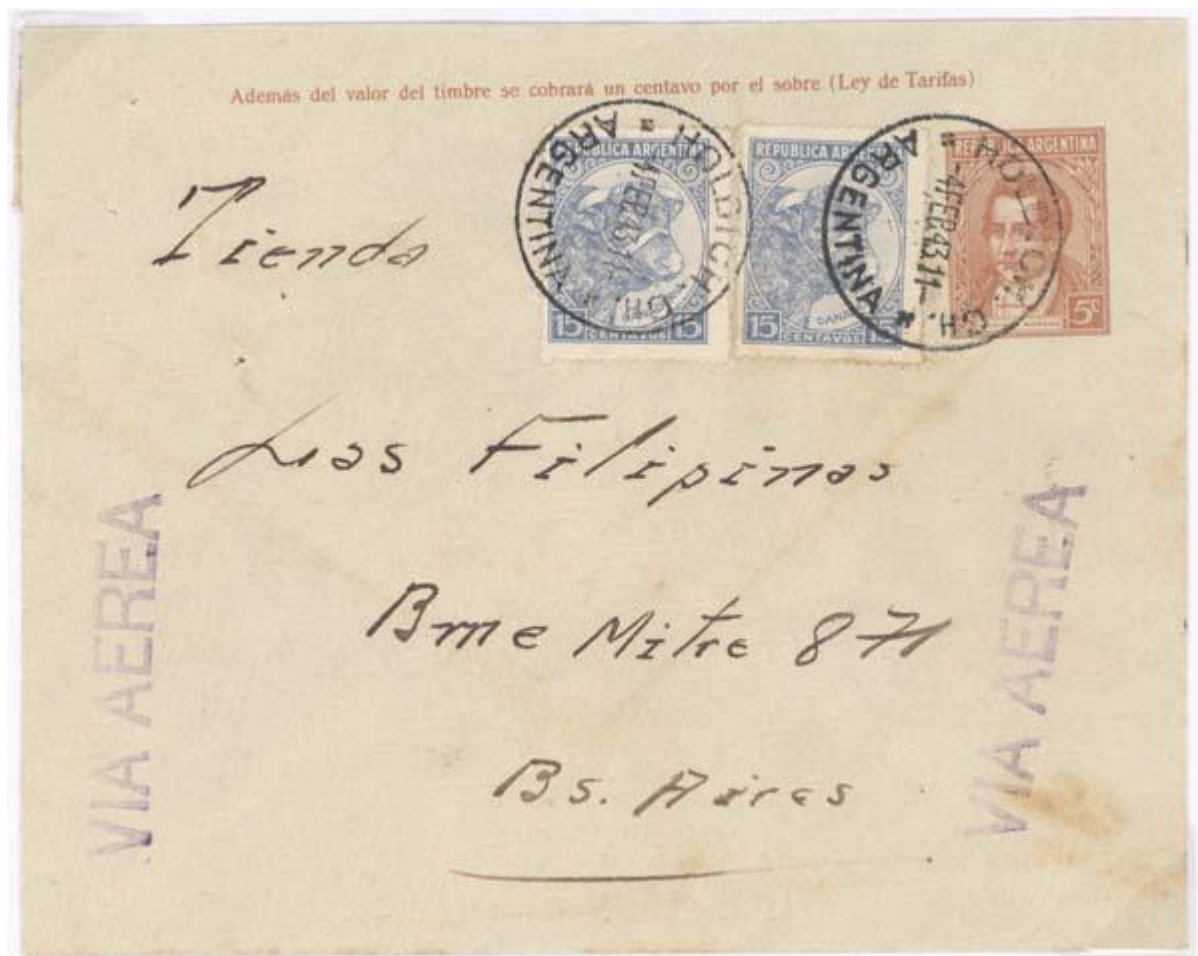 Además del valor del timbre se cobrará un centavo por el sobre (Ley de Tarifas)
REPUBLICA ARGENTINA
15 CENTAVOS 15
REPUBLICA ARGENTINA
15 CENTAVOS 15
REPUBLICA ARGENTINA
5c
HOLDICH. CH.
ARGENTINA
4 FEB 43. 11
ARGENTINA
CH.
-4 FEB 43. 11-
Tienda
Las Filipinas
Bme Mitre 871
Bs. Aires
VIA AEREA
VIA AEREA